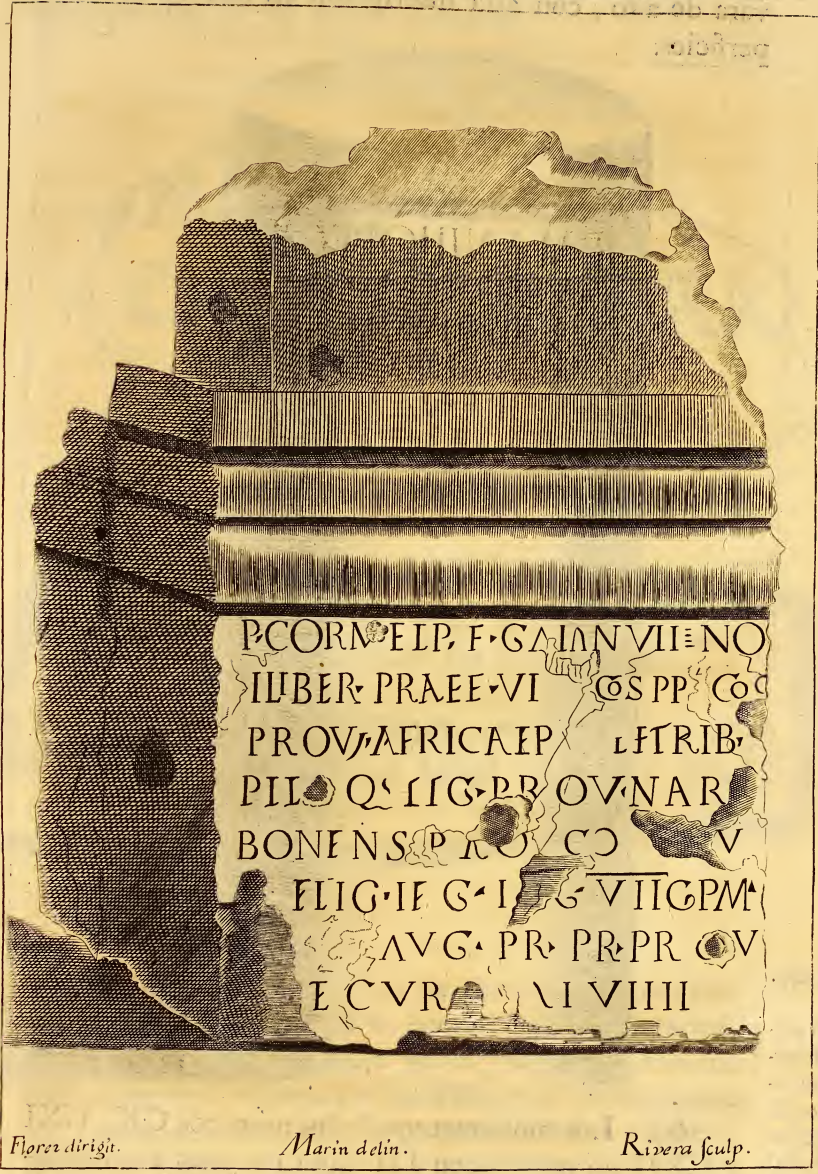 P. CORN ELP. F · GAIANVII NO
ILIBER· PRAEF · VI COS PP CO
PROV AFRICAEP LETRIB·
PIL Q LIG · PR OV·NAR
BONENS PRO CO V
FLIG·IE G· I G· VIIGPM
AVG· PR· PR·PR OV
E CVR I VIIII
Florez dirigit.
Marin delin.
Rivera sculp.